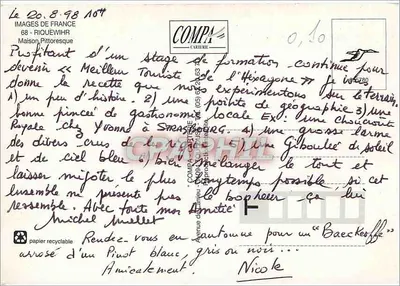 Le 20.8.98 10H
IMAGES DE FRANCE
68 - RIQUEWIHR
Maison Pittoresque
COMPA
CARTERIE
0,10
Profitant d'un stage de formation continue pour
devenir « Meilleur Touriste de l'Hexagone » je vous
donne la recette que nous expérimentons sur le terrain.
1) un peu d'histoire. 2) une pointe de géographie 3) une
bonne pincée de gastronomie locale Ex: une choucroute
Royale chez Yvonne à STRASBOURG. 4) une grosse larme
des divers crus de la région 5) une Giboulée de soleil
et de ciel bleu. bien mélanger le tout et
laisser mijoter le plus longtemps possible si cet
ensemble ne présente pas le bonheur ça lui
ressemble. Avec toute mon Amitié
Michel Mullet
F
papier recyclable
Rendez vous en automne pour un "Baeckeoffe"
arrosé d'un Pinot blanc, gris ou noir...
Amicalement. Nicole